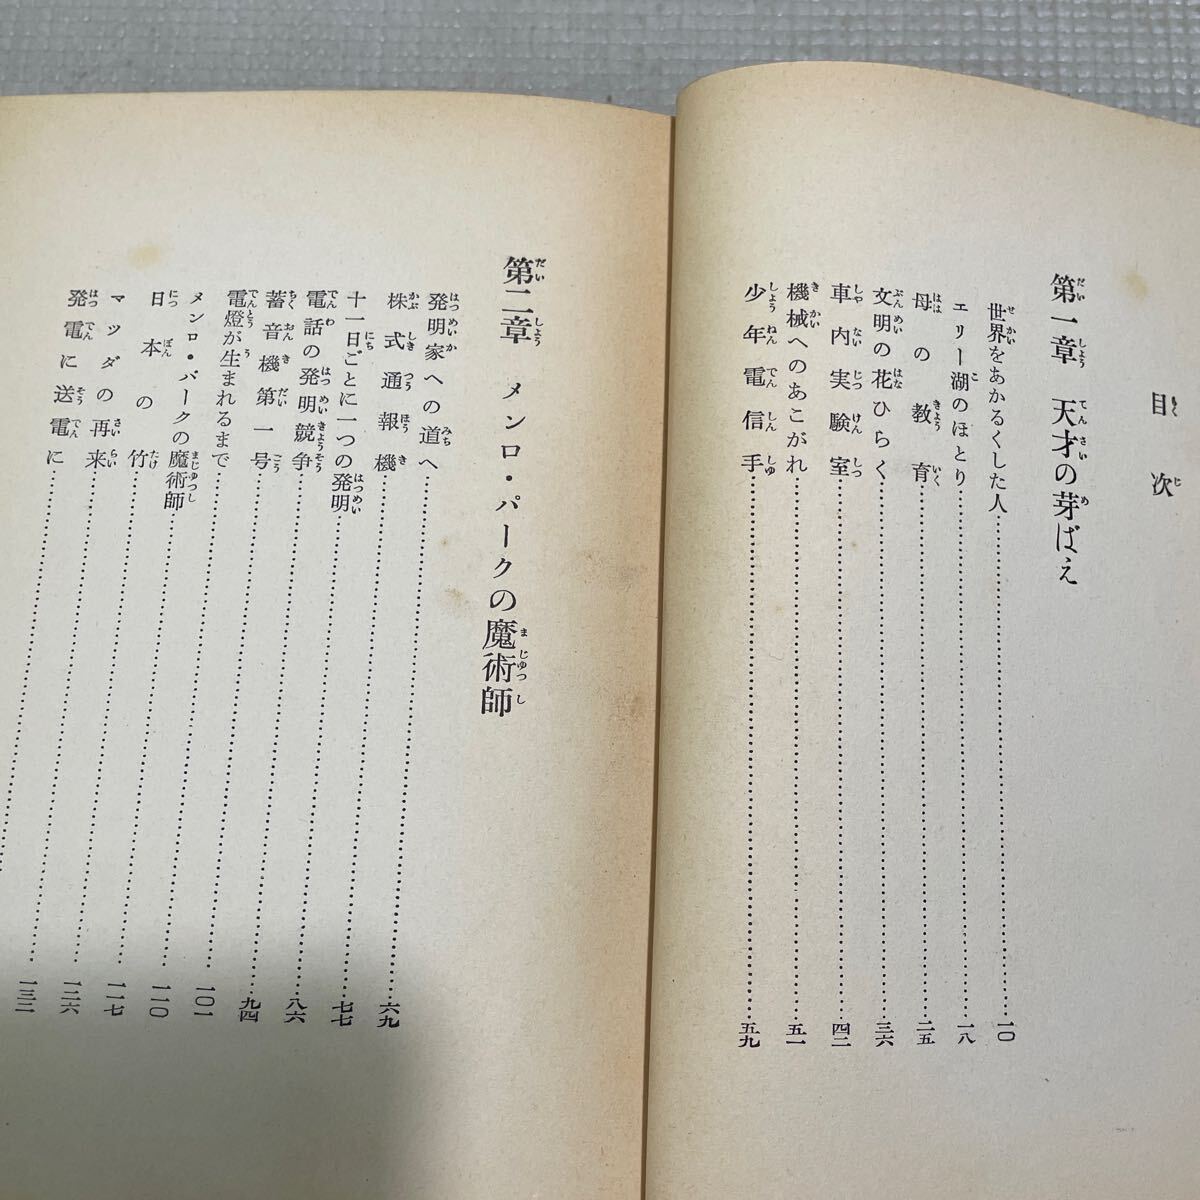 目次
第一章 天才の芽ばえ
世界をあかるくした人……一〇
エリー湖のほとり……一八
母の教育……二五
文明の花ひらく……三六
車内実験室……四二
機械へのあこがれ……五一
少年電信手……五九
第二章 メンロ・パークの魔術師
発明家への道へ……六九
株式通報機……七七
十一日ごとに一つの発明……八六
電話の発明競争……九四
蓄音機第一号……一〇一
電燈が生まれるまで……一一〇
メンロ・パークの魔術師……一一七
日本の竹……一二六
マツダの再来……一三二
発電に送電に……